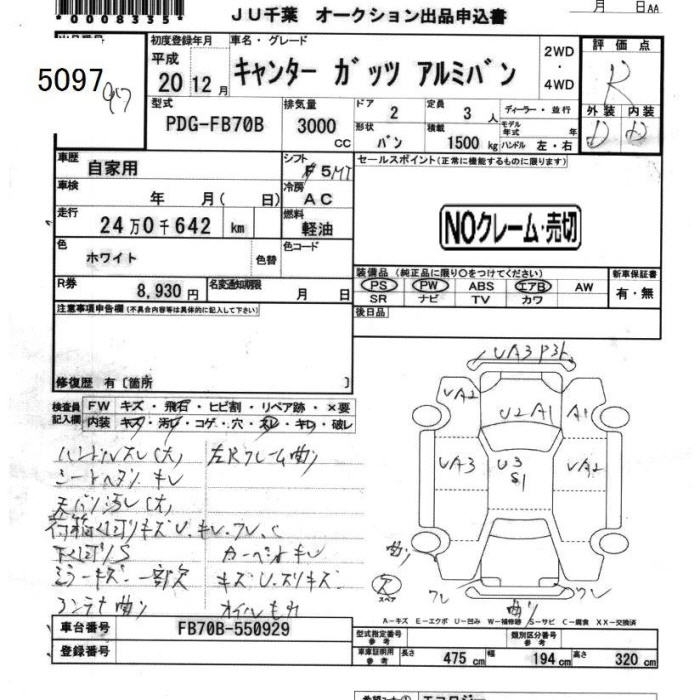 *0008335*
JU千葉 オークション出品申込書
月 日AA
5097
初度登録年月
平成
20 12月
車名・グレード
キャンター ガッツ アルミバン
2WD
・
4WD
評価点
R
外装 内装
D D
型式
PDG-FB70B
排気量
3000
CC
ドア 2
定員 3人
ディーラー・並行
形状 バン
積載 1500kg
モデル年式 年
ハンドル 左・右
車歴 自家用
シフト 5MT
セールスポイント(正常に機能するものに限ります)
車検 年 月( 日)
冷房 AC
走行 24万0千642 km
燃料 軽油
NOクレーム・売切
色 ホワイト 色替
色コード
R券 8,930円
名変通知期限 月 日
装備品(純正品に限り○をつけてください)
PS PW ABS エアB AW
SR ナビ TV カワ
新車保証書
有・無
注意事項申告欄(不具合内容等は具体的に記入して下さい)
後日品
修復歴 有〔箇所 〕
検査員記入欄
FW キズ・飛石・ヒビ割・リペア跡・×要
内装 キズ・汚レ・コゲ・穴・スレ・キレ・破レ
ハンドルスレ(大) 左Rフレーム曲り
シートヘタリ キレ
天バリ汚レ(大)
下回りS カーペットキレ
ミラーキズ 一部欠 キズU.スリキズ
コンテナ曲り オイルもれ
UA3
UA2
U2A1
A1
UA3
U3
S1
UA2
曲り
スペア
ワレ
曲り
ワレ
A−キズ E−エクボ U−凹み W−補修跡 S−サビ C−腐食 XX−交換済
車台番号 FB70B-550929
登録番号
型式指定番号 参考
類別区分番号 参考
車庫証明用 参考 長さ 475cm 幅 194cm 高さ 320cm